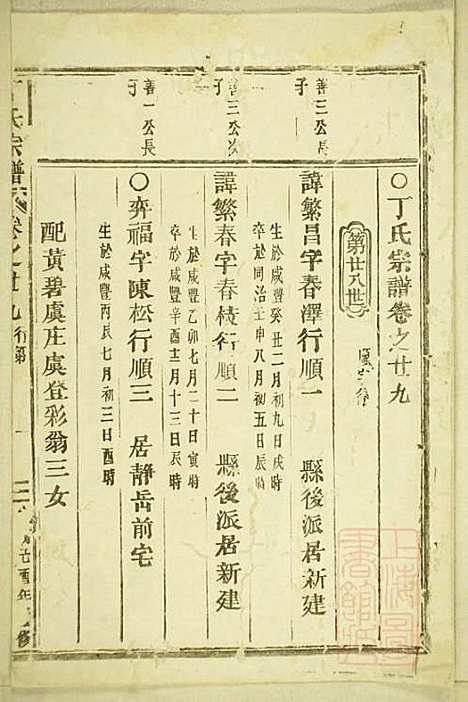 ○丁氏宗譜卷之廿九
第廿八世
善三公長子
諱繁昌字春澤行順一　縣後派居新建
生於咸豐癸丑二月初九日戌時
卒於同治壬申八月初五日辰時
善三公次子
諱繁春字春枝行順二　縣後派居新建
生於咸豐乙卯七月二十日寅時
卒於咸豐辛酉十二月十三日辰時
善一公長子
○弈福字陳松行順三　居靜岳前宅
生於咸豐丙辰七月初三日酉時
配黃碧虞庄虞登彩翁三女
丁氏宗譜
卷之廿九
行第
上海圖書館藏